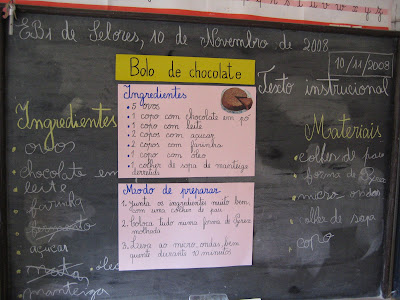 EB1 de Selores, 10 de Novembro de 2008
10/11/2008
Texto instrucional
Bolo de chocolate
Ingredientes
• 5 ovos
• 1 copo com chocolate em pó
• 1 copo com leite
• 2 copos com açúcar
• 2 copos com farinha
• 1 copo com óleo
• 1 colher de sopa de manteiga
derretida
Modo de preparar
1. Junta os ingredientes muito bem,
com uma colher de pau
2. Coloca tudo numa forma de Pirex
molhada
3. Leva ao micro-ondas bem
quente durante 10 minutos
Ingredientes
- ovos
- chocolate em
- leite
- farinha
- açúcar
- óleo
- manteiga
Materiais
- colher de pau
- forma de Pirex
- micro ondas
- colher de sopa
- copo